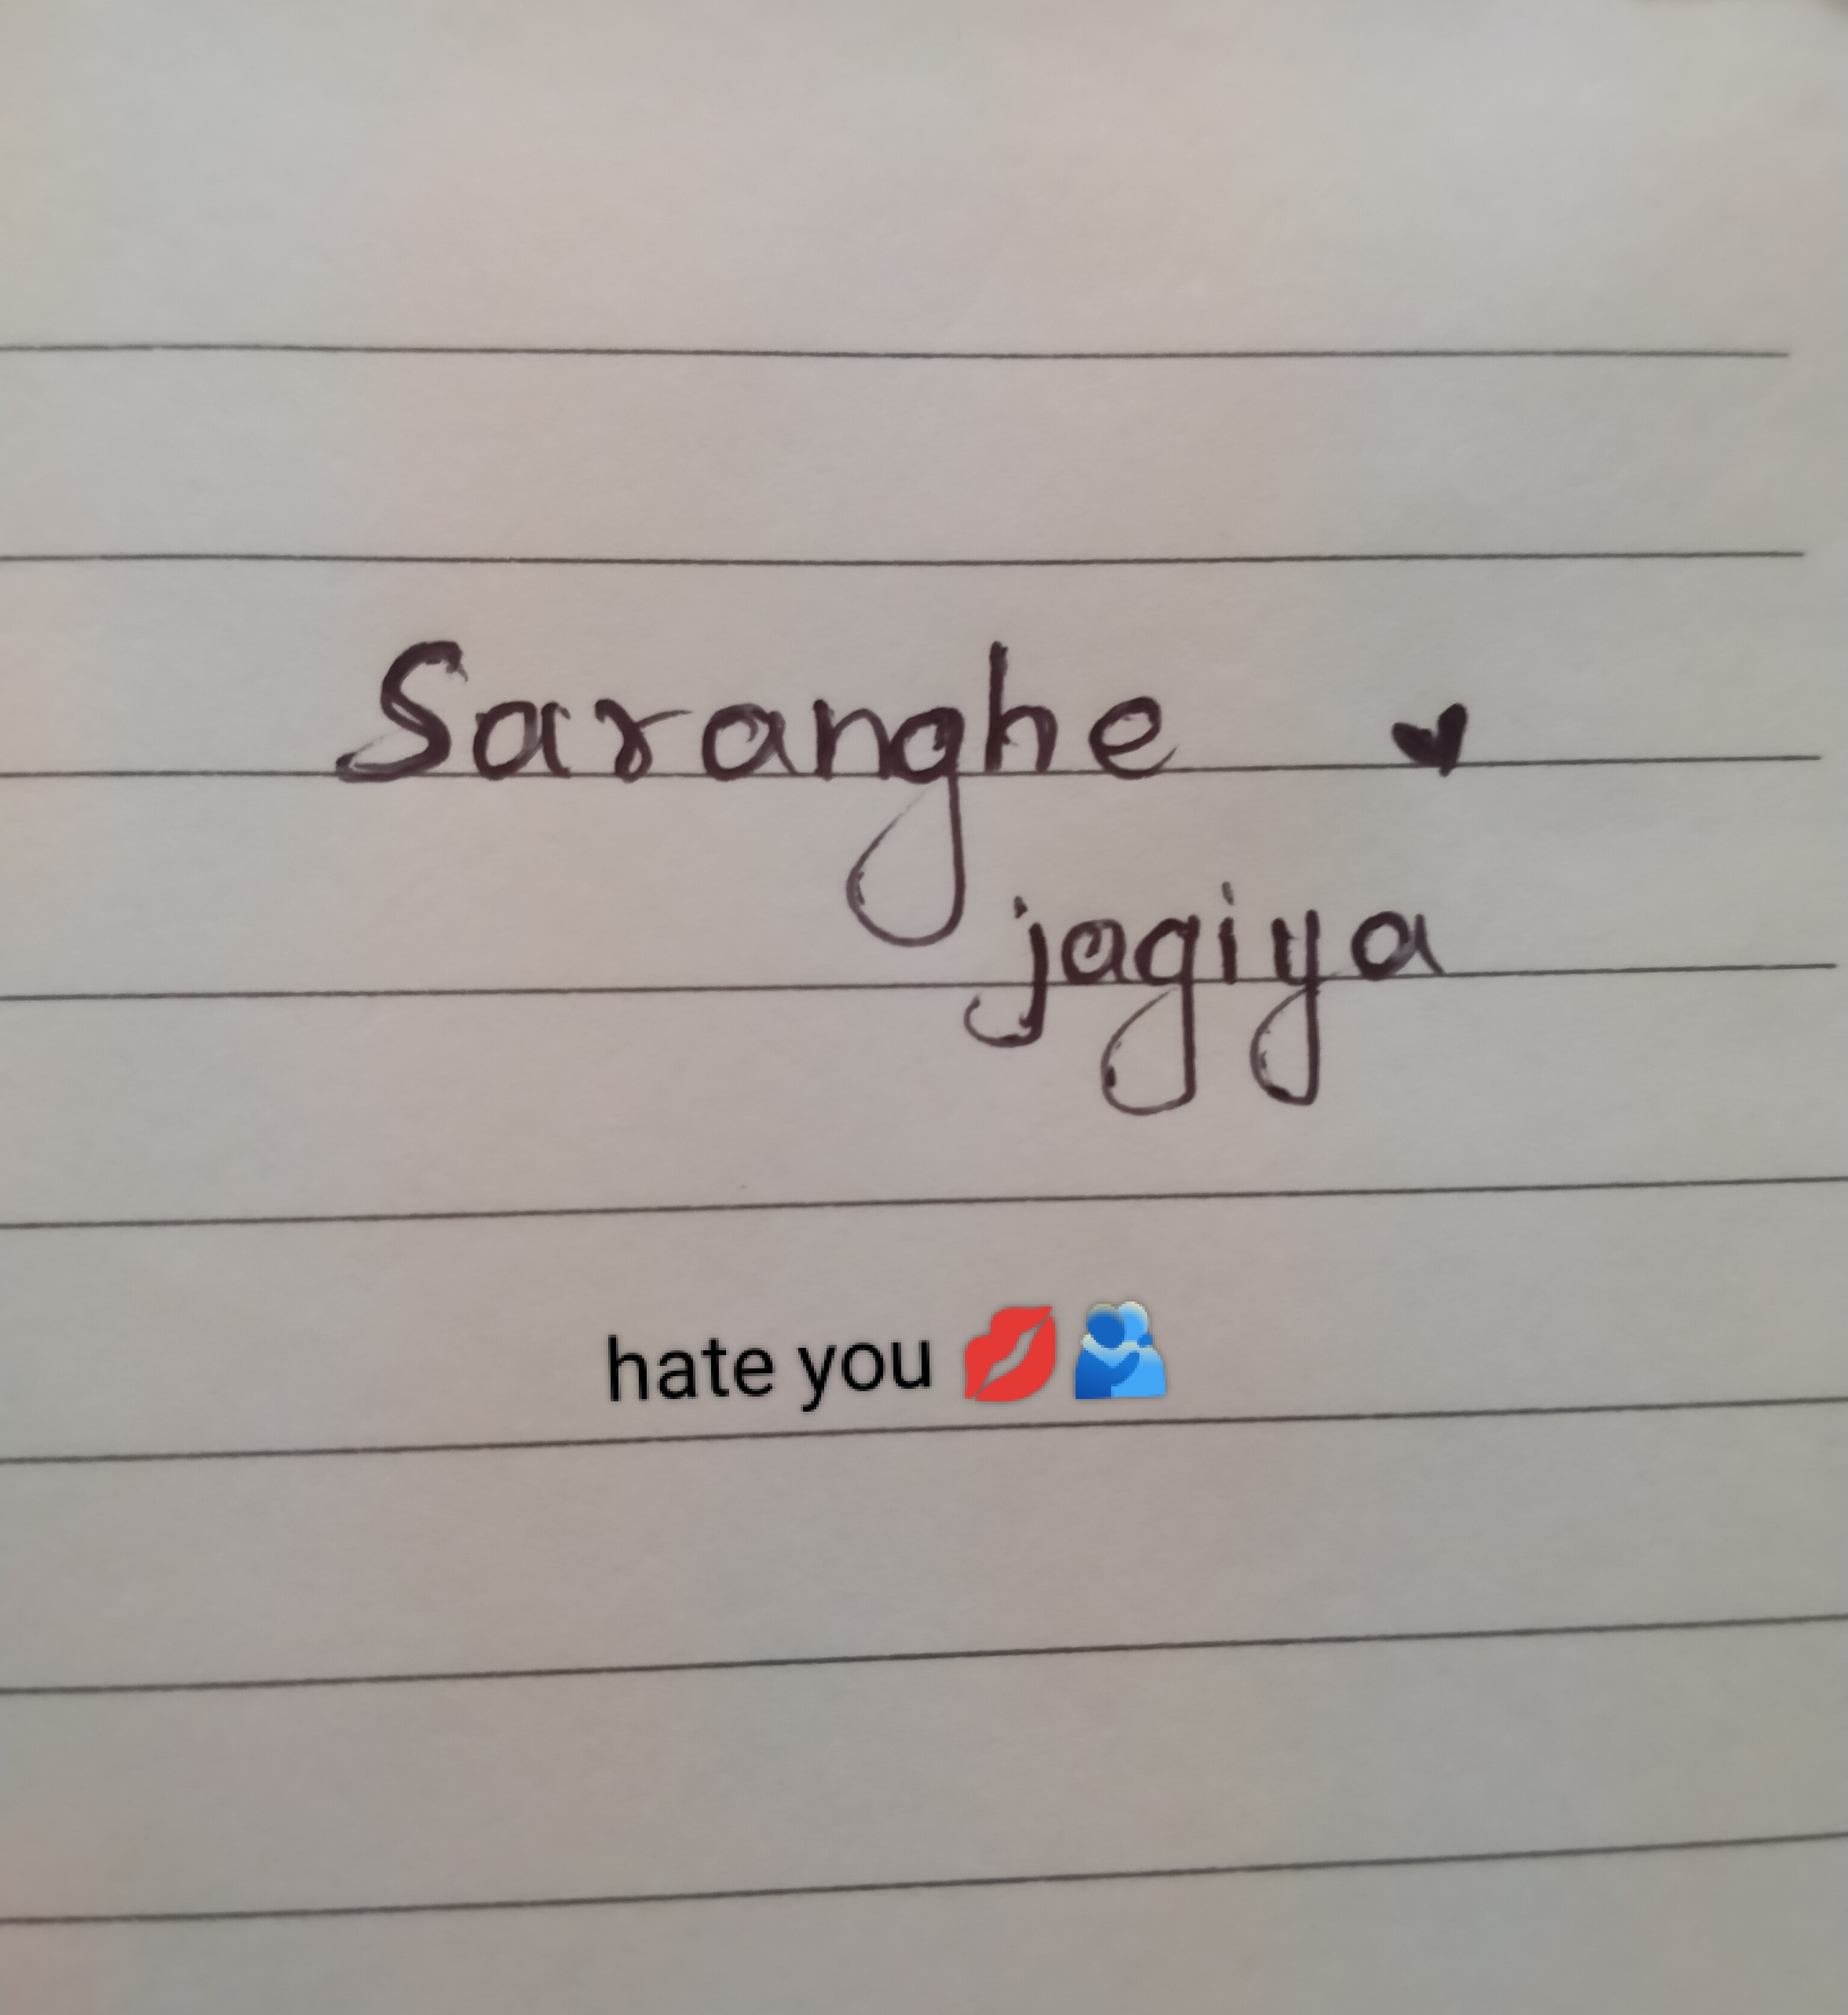 Saranghe ♥
jagiya
hate you 💋🫂